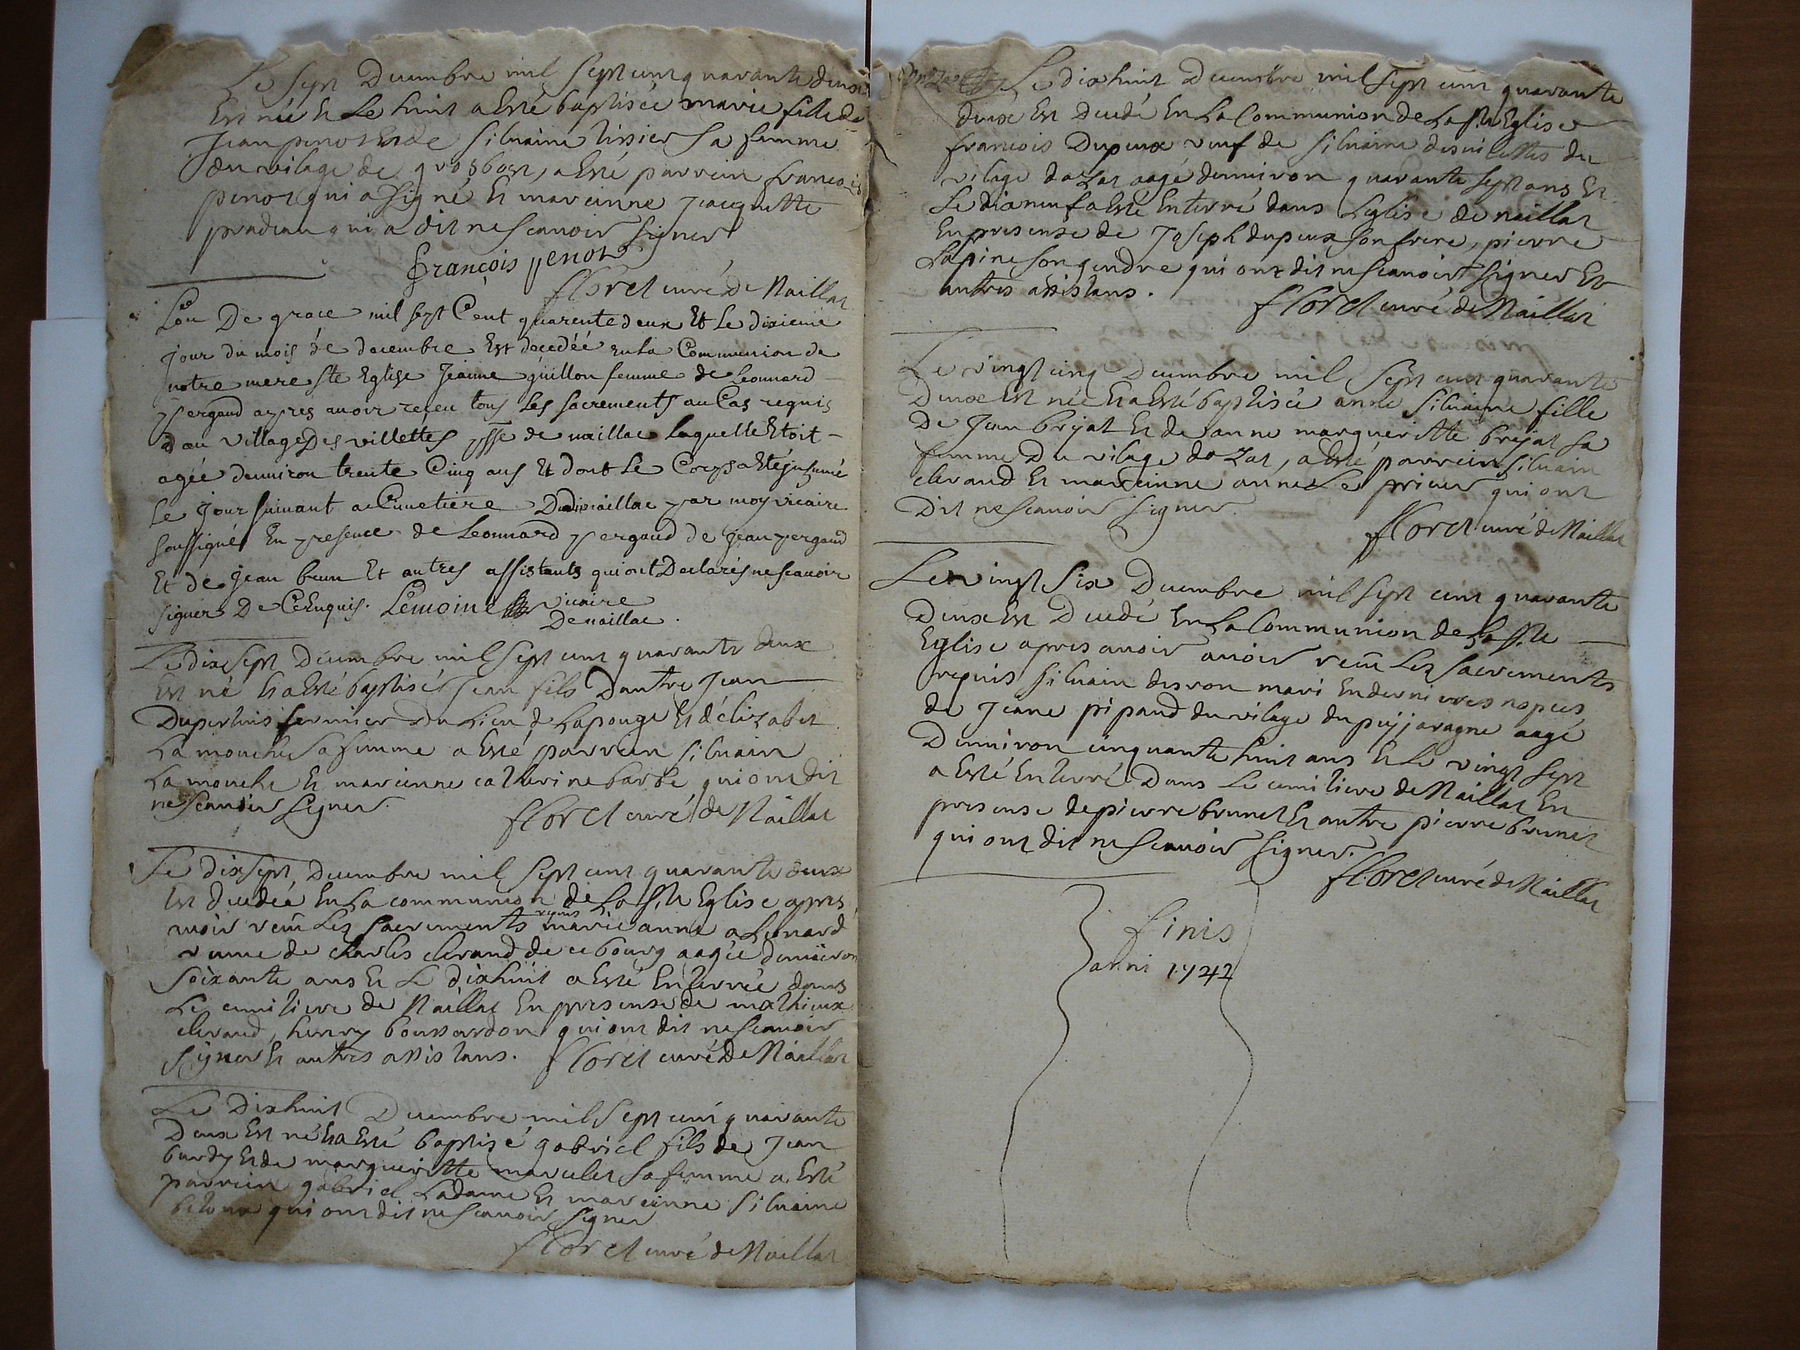 Le sept Decembre mil sept cent quarante deux
Est née et Le huit a esté baptisée marie fille de
Jean penot et de silvaine tissier sa femme
du vilage de grosbost, a esté parrein francois
penot qui a signé et mareinne jacquette
pradeau qui a dit ne scavoir signer
François penot
floret curé de Naillat
L'an De grace mil sept Cent quarente deux Et Le dixieme
jour du mois de decembre Est decedée en la Communion de
notre mere ste Eglise Jeanne guillon femme de Leonnard
pergaud apres avoir receu tous Les sacrements au Cas requis
dau village Des villettes psse de naillac Laquelle Etoit
agée denviron trente Cinq ans Et dont Le Corps a Eté inhumé
Le jour suivant au Cimetiere Dudi naillac par moy vicaire
soussigné En presence de Leonnard pergaud de jean pergaud
Et de jean brun Et autres assistants qui ont Declarés ne scavoir
signer De Ce Enquis. Lemoine vicaire
De naillac.
Le dix sept decembre mil sept cent quarante deux
Est né et a esté baptisé Jean fils D'autre Jean
Dupertuis fermier du Lieu de Lapouge et d'elizabet
La mouche sa femme a esté parrein silvain
La mouche et mareinne catherine barbe qui ont dit
ne scavoir signer.
floret curé de Naillat
Le dix sept decembre mil sept cent quarante deux
Est decedée En La communion de La ste Eglise apres
avoir receu Les sacrements requis marie anne a Lenard
veuve de charles clerand de ce bourg aagée denviron
soixante ans et Le dixhuit a esté Enterrée dans
Le cimitiere de Naillat En presense de mathieux
clerand, henry boussardon qui ont dit ne scavoir
signer et autres assistans. floret curé De Naillat
Le Dixhuit Decembre mil sept cent quarante
Deux Est né et a esté baptisé gabriel fils de Jean
burdy et de margueritte marcelet sa femme a esté
parrein gabriel Ladame et mareinne silvaine
qui ont dit ne scavoir signer
floret curé de Naillat
Le dixhuit decembre mil sept cent quarante
deux Est decedé En La Communion de La ste Eglise
francois Dupeux veuf de silvaine desvilettes du
vilage dazat aagé denviron quarante sept ans Et
Le dixneuf a esté Enterré dans Leglise de naillat
En presense de Joseph dupeux son frere, pierre
Lapine son gendre qui ont dit ne scavoir signer Et
autres assistans.
floret curé de Naillat
Le vingt cinq Decembre mil sept cent quarante
Deux Est née et a esté baptisée anne silvaine fille
De Jean brejat et de anne margueritte brejat sa
femme Du vilage dazat, a esté parrein silvain
clerand et mareinne anne Le prieur qui ont
Dit ne scavoir signer.
floret curé de Naillat
Le vingt six Decembre mil sept cent quarante
deux Est Decedé En La Communion de La ste
Eglise apres avoir avoir receu Les sacrements
requis silvain desron mari En dernieres nopces
de Jeane pipaud du vilage du puyjaragne aagé
Denviron cinquante huit ans et Le vingt sept
a esté Enterré Dans Le cimitiere de Naillat En
presense de pierre brunet et autre pierre brunet
qui ont dit ne scavoir signer.
floret curé de Naillat
finis
anni 1742